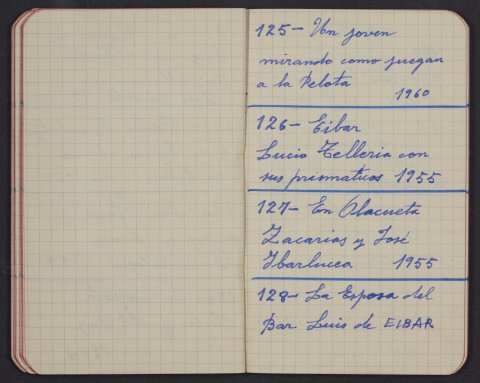 125- Un joven
mirando como juegan
a la Pelota
1960
126- Eibar
Lucio Telleria con
sus prismaticos 1955
127- En Olacueta
Zacarias y José
Ibarlucea 1955
128- La Esposa del
Bar Luis de EIBAR